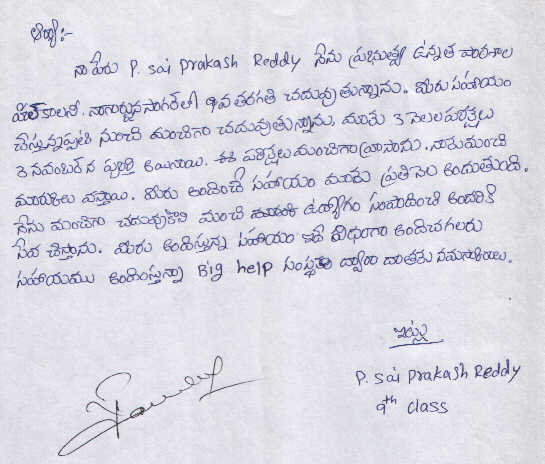 ఆర్యా:-
నా పేరు P. Sai Prakash Reddy నేను ప్రభుత్వ ఉన్నత పాఠశాల
హిల్ కాలనీ, నాగార్జునసాగర్‌లో 9వ తరగతి చదువుతున్నాను. మీరు సహాయం
చేస్తున్నప్పటి నుంచి మంచిగా చదువుతున్నాను. మాకు 3 నెలల పరీక్షలు
3 నవంబర్ న పూర్తి అయినాయి. ఈ పరీక్షలు మంచిగా వ్రాసాను. నాకు మంచి
మార్కులు వస్తాయి. మీరు అందించే సహాయం మాకు ప్రతి నెల అందుతుంది.
నేను మంచిగా చదువుకొని మంచి ఉద్యోగం సంపాదించి అందరికి
సేవ చేస్తాను. మీరు అందిస్తున్న సహాయం ఇదే విధంగా అందించగలరు
సహాయము అందింస్తున్నా Big help సంస్థ ద్వారా దాతలకు నమస్కారాలు.
ఇట్లు
P. Sai Prakash Reddy
9th class